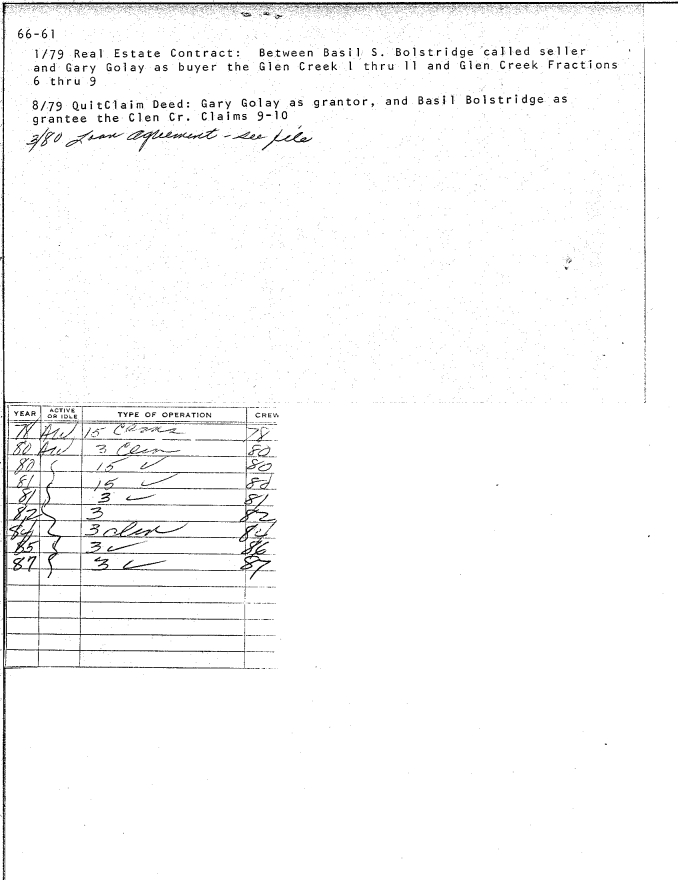 66-61
1/79 Real Estate Contract: Between Basil S. Bolstridge called seller
and Gary Golay as buyer the Glen Creek 1 thru 11 and Glen Creek Fractions
6 thru 9
8/79 QuitClaim Deed: Gary Golay as grantor, and Basil Bolstridge as
grantee the Clen Cr. Claims 9-10
3/80 Loan agreement - see file
YEAR ACTIVE OR IDLE TYPE OF OPERATION CREW
78 AW 15 78
80 AW 3 80
80 15 ✓ 80
81 15 ✓
81 3 ✓ 81
82 3 82
84 3 84
85 3 ✓ 86
87 3 ✓ 87